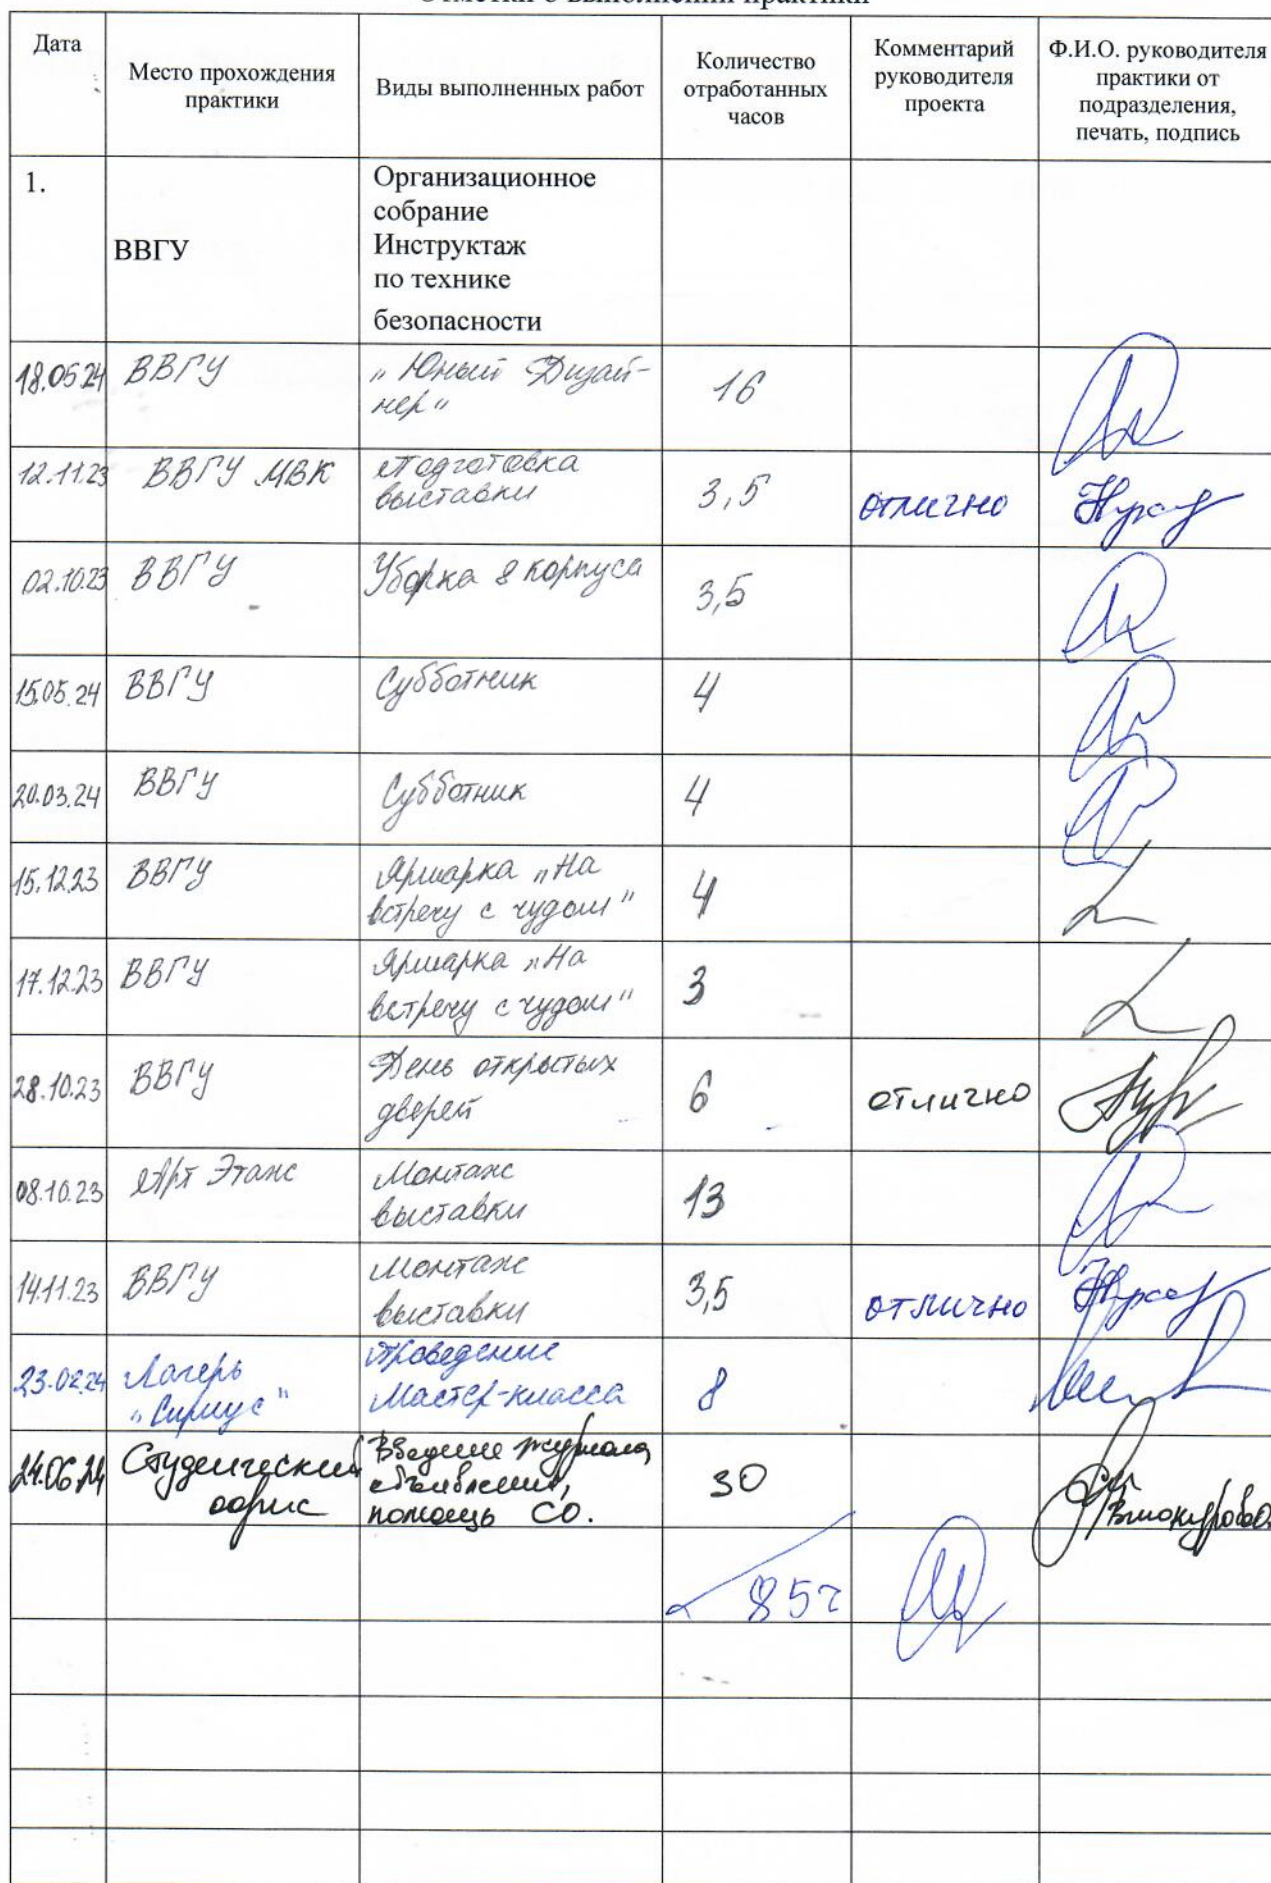 Отметки о выполнении практики
Дата
Место прохождения
практики
Виды выполненных работ
Количество
отработанных
часов
Комментарий
руководителя
проекта
Ф.И.О. руководителя
практики от
подразделения,
печать, подпись
1.
ВВГУ
Организационное
собрание
Инструктаж
по технике
безопасности
18.05.24 ВВГУ "Юный Дизай-
нер" 16
12.11.23 ВВГУ МВК Подготовка
выставки 3,5 отлично
02.10.23 ВВГУ Уборка 8 корпуса 3,5
15.05.24 ВВГУ Субботник 4
20.03.24 ВВГУ Субботник 4
15.12.23 ВВГУ Ярмарка "На
встречу с чудом" 4
17.12.23 ВВГУ Ярмарка "На
встречу с чудом" 3
28.10.23 ВВГУ День открытых
дверей 6 отлично
08.10.23 Арт Этаж Монтаж
выставки 13
14.11.23 ВВГУ Монтаж
выставки 3,5 отлично
23.02.24 Лагерь Проведение
"Сириус" Мастер-класса 8
24.06.24 Студенческий журнала,
офис 30
помощь СО.
85ч